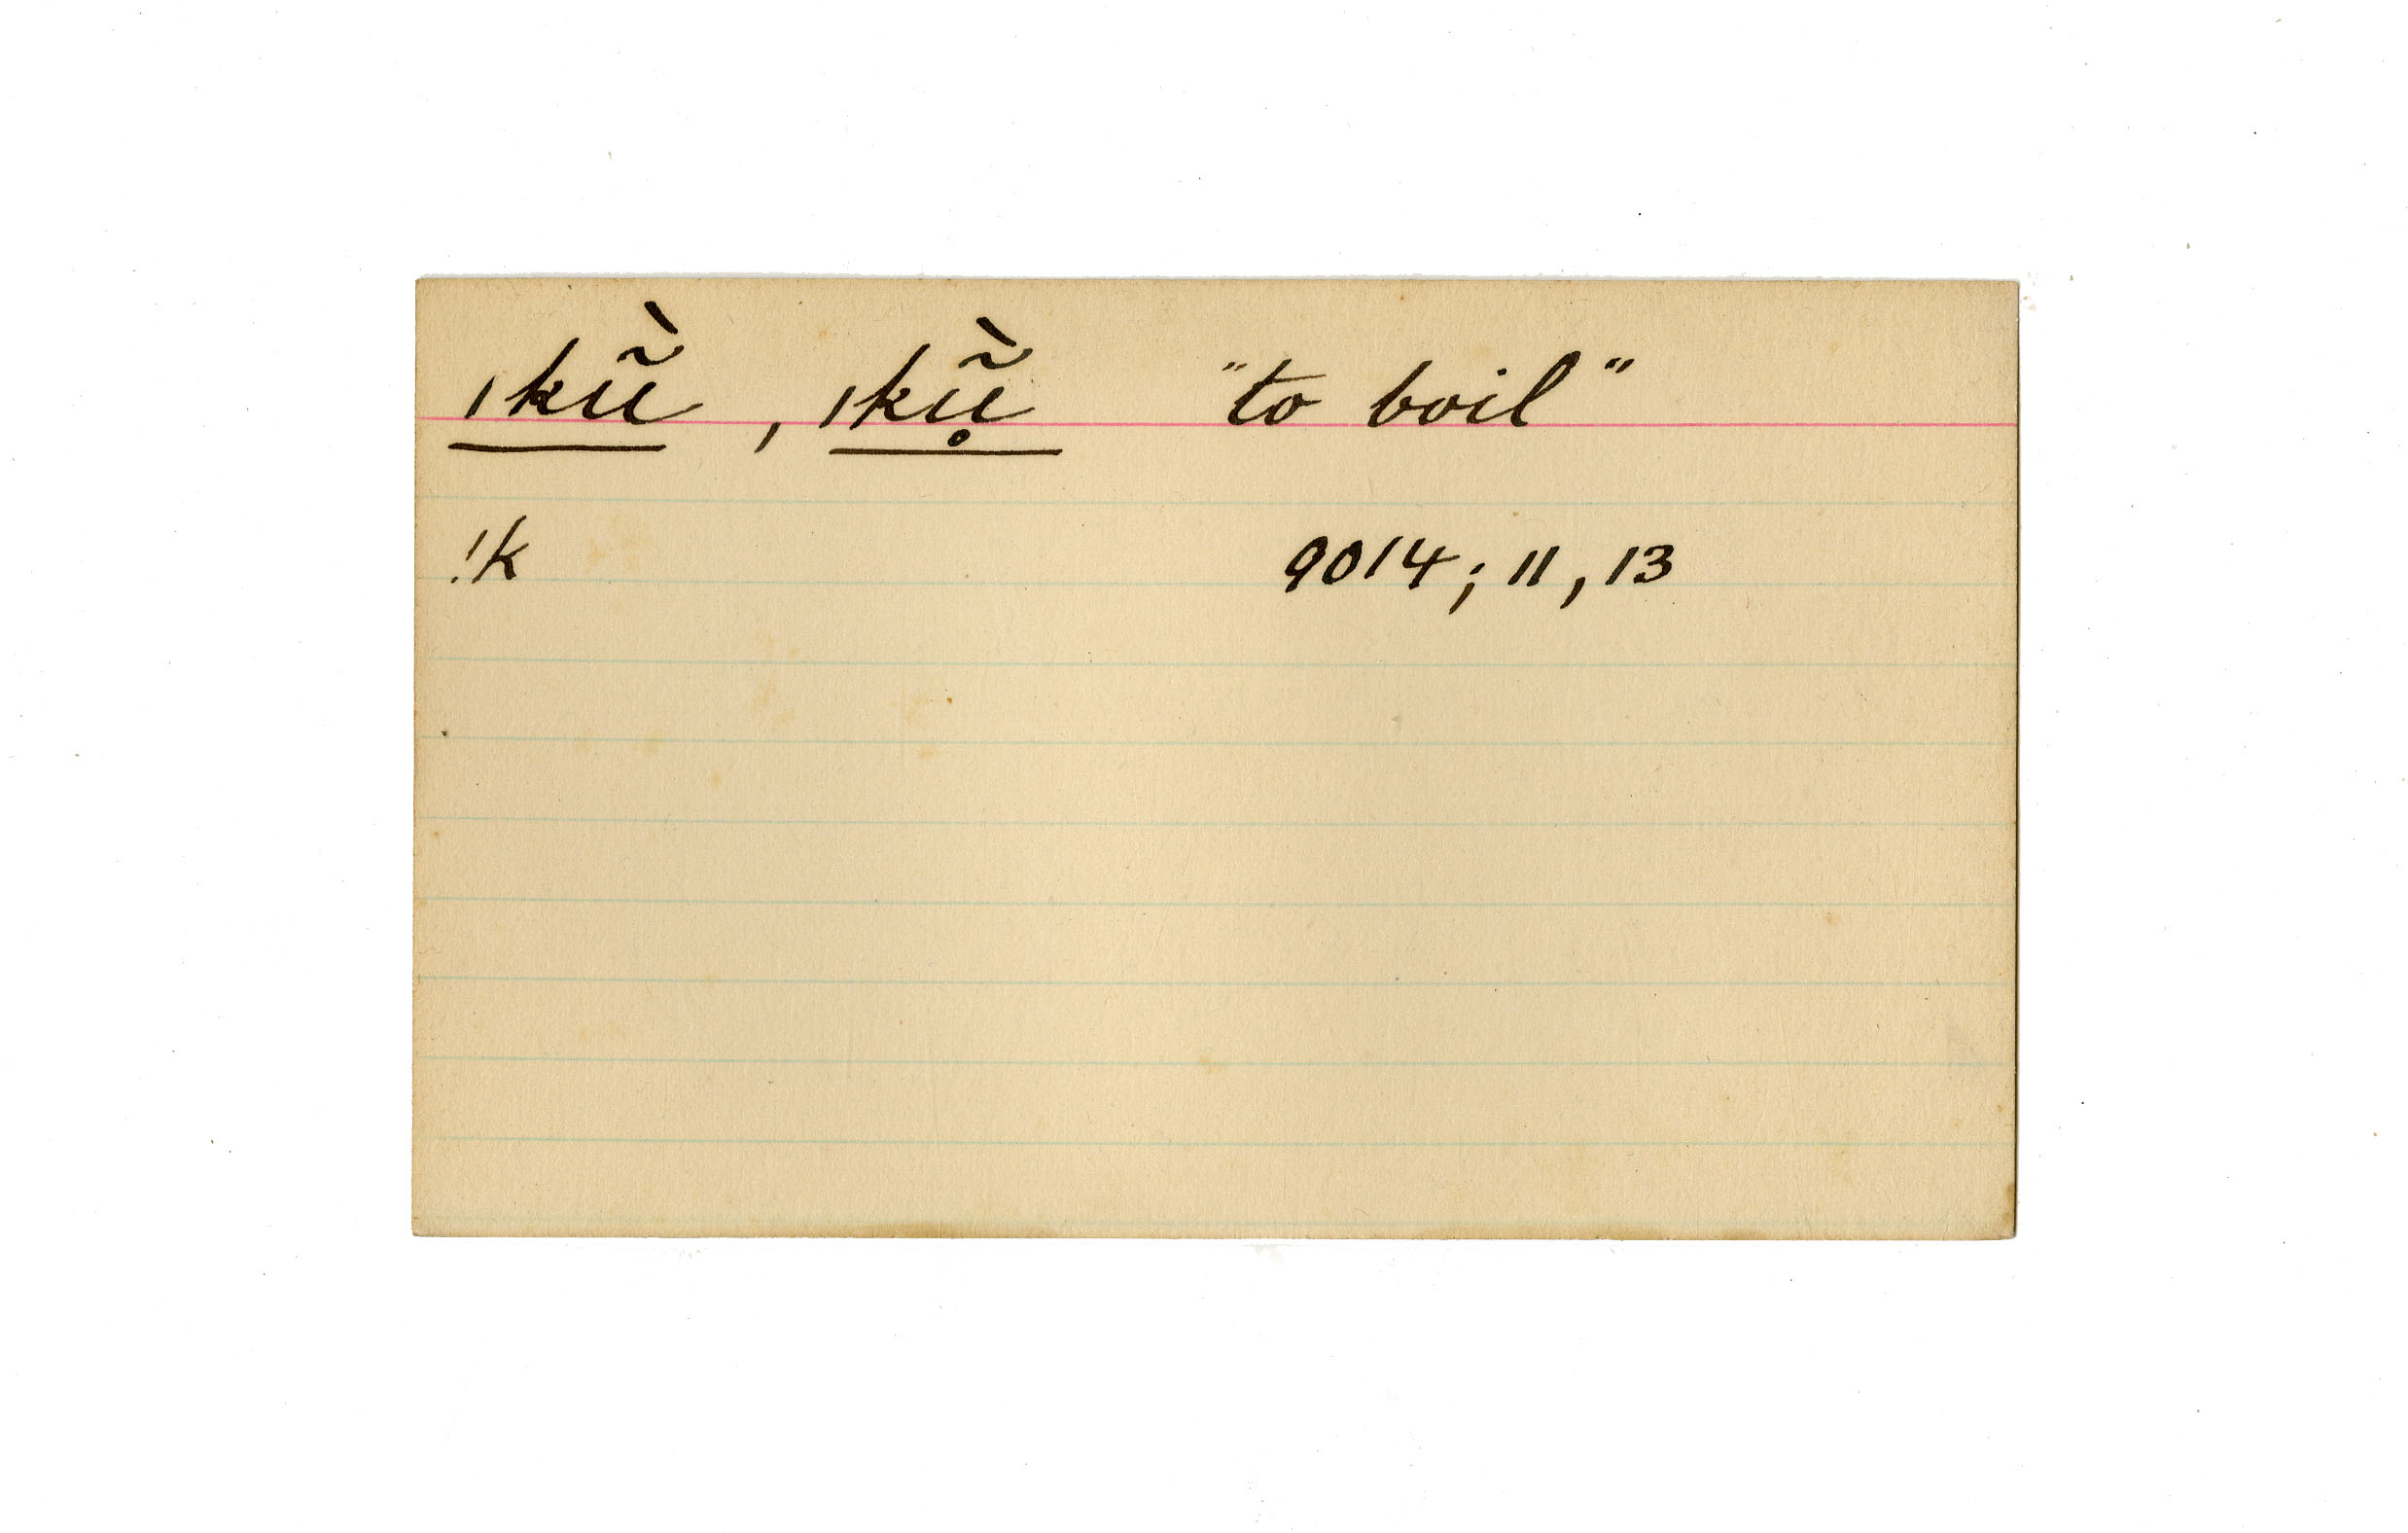 ǀkũ̀ , ǀkṵ̃̀ "to boil"
!k 9014; 11, 13